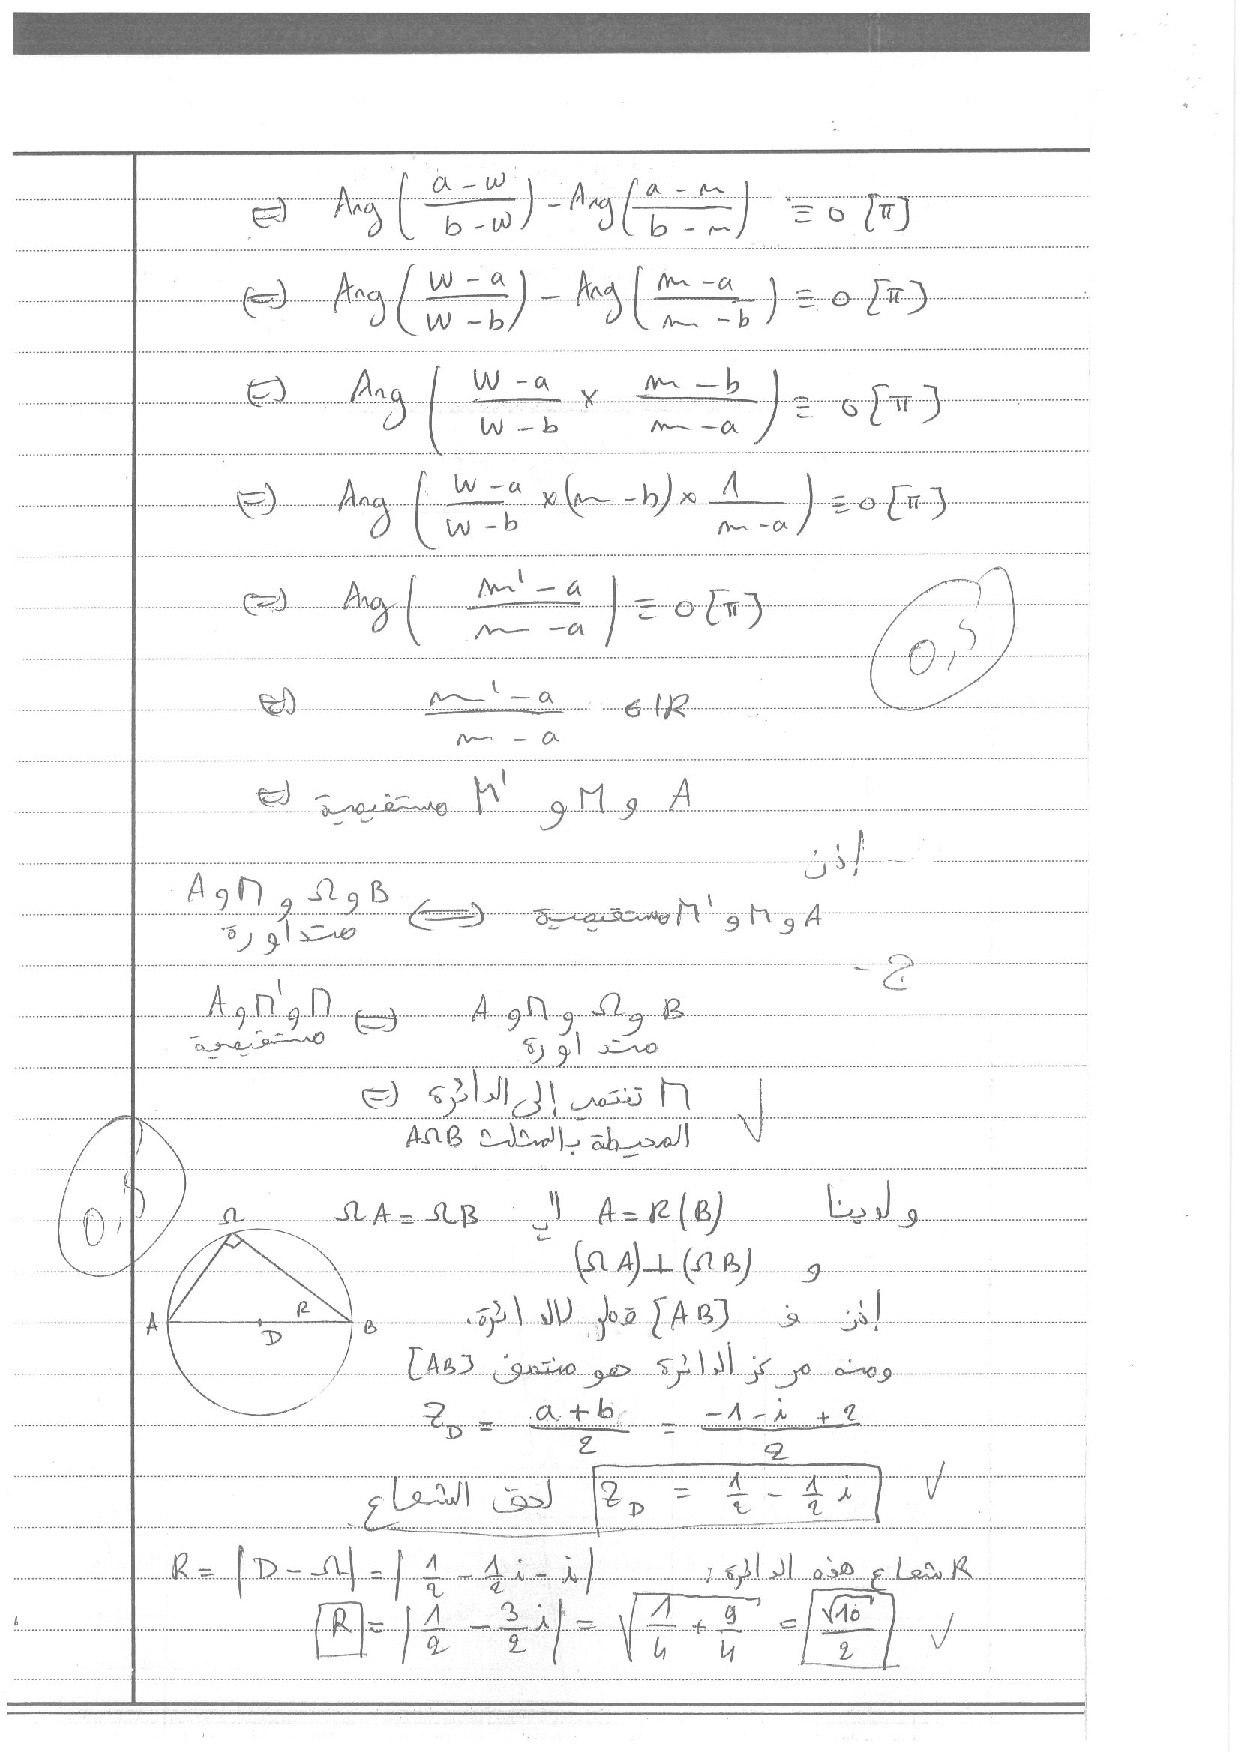 ⇔ Arg((a-w)/(b-w)) - Arg((a-m)/(b-m)) ≡ 0 [π]
⇔ Arg((w-a)/(w-b)) - Arg((m-a)/(m-b)) ≡ 0 [π]
⇔ Arg((w-a)/(w-b) × (m-b)/(m-a)) ≡ 0 [π]
⇔ Arg((w-a)/(w-b) × (m-b) × 1/(m-a)) ≡ 0 [π]
⇔ Arg((m'-a)/(m-a)) ≡ 0 [π]
0,5
⇔ (m'-a)/(m-a) ∈ IR
⇔ A و M و M' مستقيمية
إذن
A و M و M' مستقيمية ⇔ B و Ω و M و A متداورة
ج -
B و Ω و M و A متداورة ⇔ M و M' و A مستقيمية
⇔ M تنتمي إلى الدائرة
المحيطة بالمثلث AΩB
0,5
ولدينا A = R(B) أي ΩA = ΩB
و (ΩA)⊥(ΩB)
Ω
A
R
D
B
إذن [AB] قطر للدائرة.
ومنه مركز الدائرة هو منتصف [AB]
Z_D = (a+b)/2 = (-1-i+2)/2
Z_D = 1/2 - 1/2 i لحق الشعاع
R شعاع هذه الدائرة: R = |D-Ω| = |1/2 - 1/2 i - i|
R = |1/2 - 3/2 i| = √(1/4 + 9/4) = √10/2